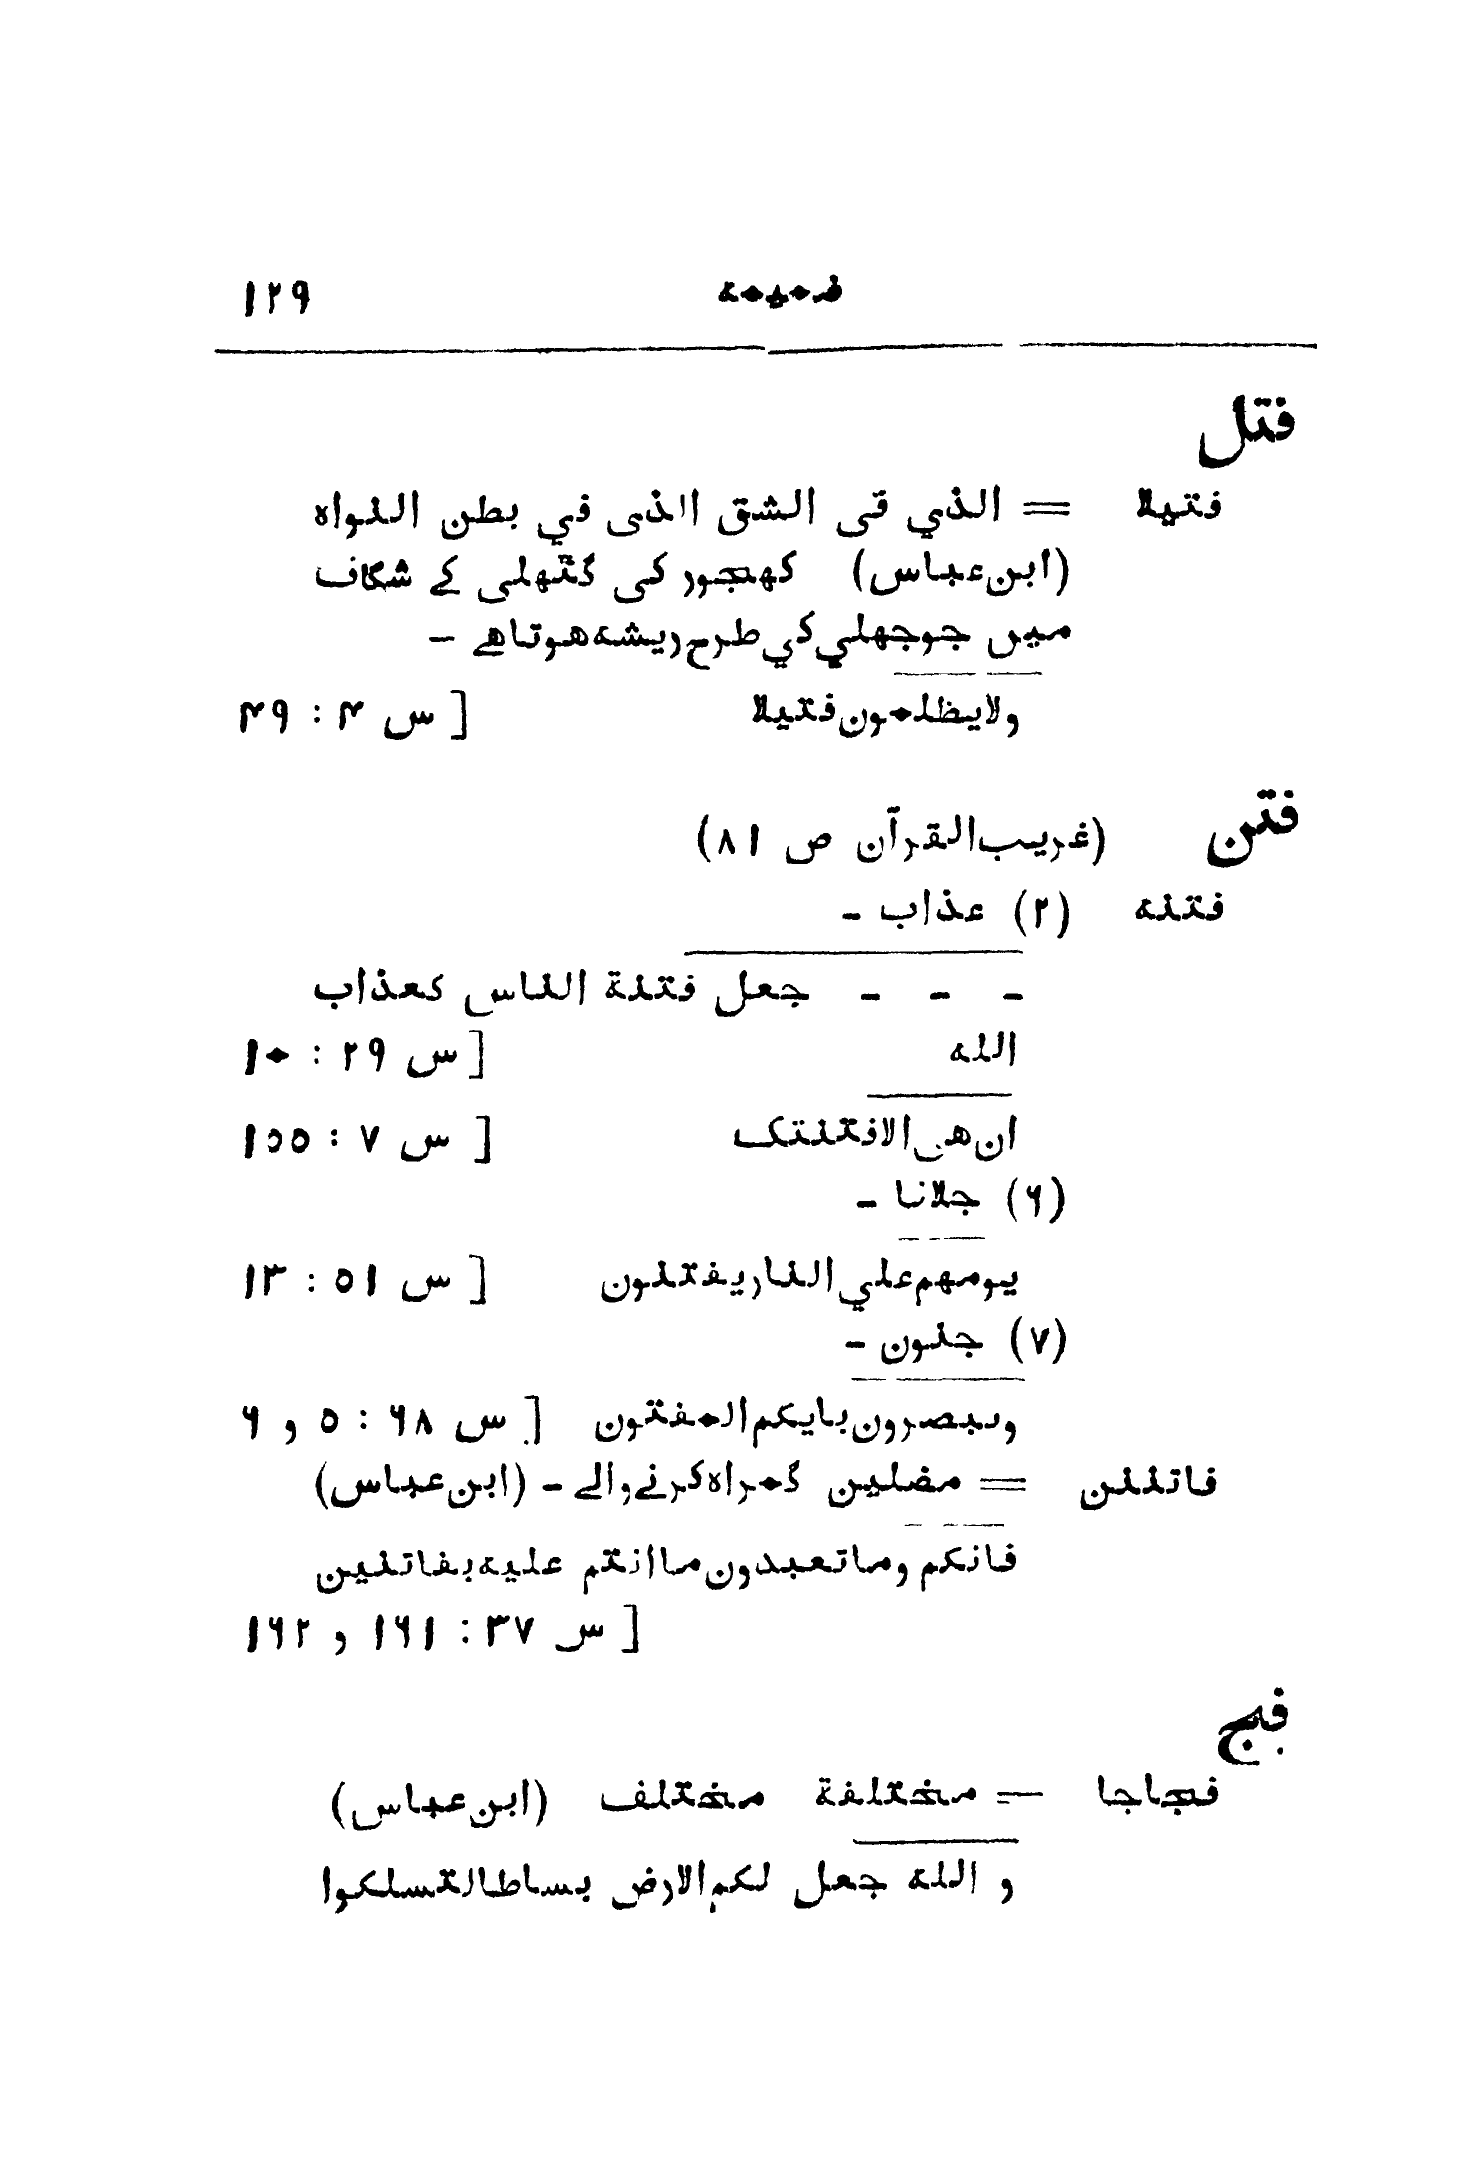 ضمیمه ۱۲۹
فتل
فتیلا = الذي فی الشق الذی في بطن النواه
(ابن عباس) کھجور کی گٹھلی کے شگاف
میں جو جھلي کي طرح ریشه هوتا هے -
ولا یظلمون فتیلا [ س ۴ : ۴۹
فتن (غریب القرآن ص ۸۱)
فتنه (۲) عذاب -
- - - جعل فتنة الناس کعذاب
الله [ س ۲۹ : ۱۰
ان هی الا فتنتک [ س ۷ : ۱۵۵
(۶) جلانا -
یوم هم علي النار یفتنون [ س ۵۱ : ۱۳
(۷) جنون -
ویبصرون بایکم المفتون [ س ۶۸ : ۵ و ۶
فاتنن = مضلین گمراه کرنے والے - (ابن عباس)
فانکم وما تعبدون ما انتم علیه بفاتنین
[ س ۳۷ : ۱۶۱ و ۱۶۲
فج
فجاجا = مختلفة مختلف (ابن عباس)
و الله جعل لکم الارض بساطا لتسلکوا